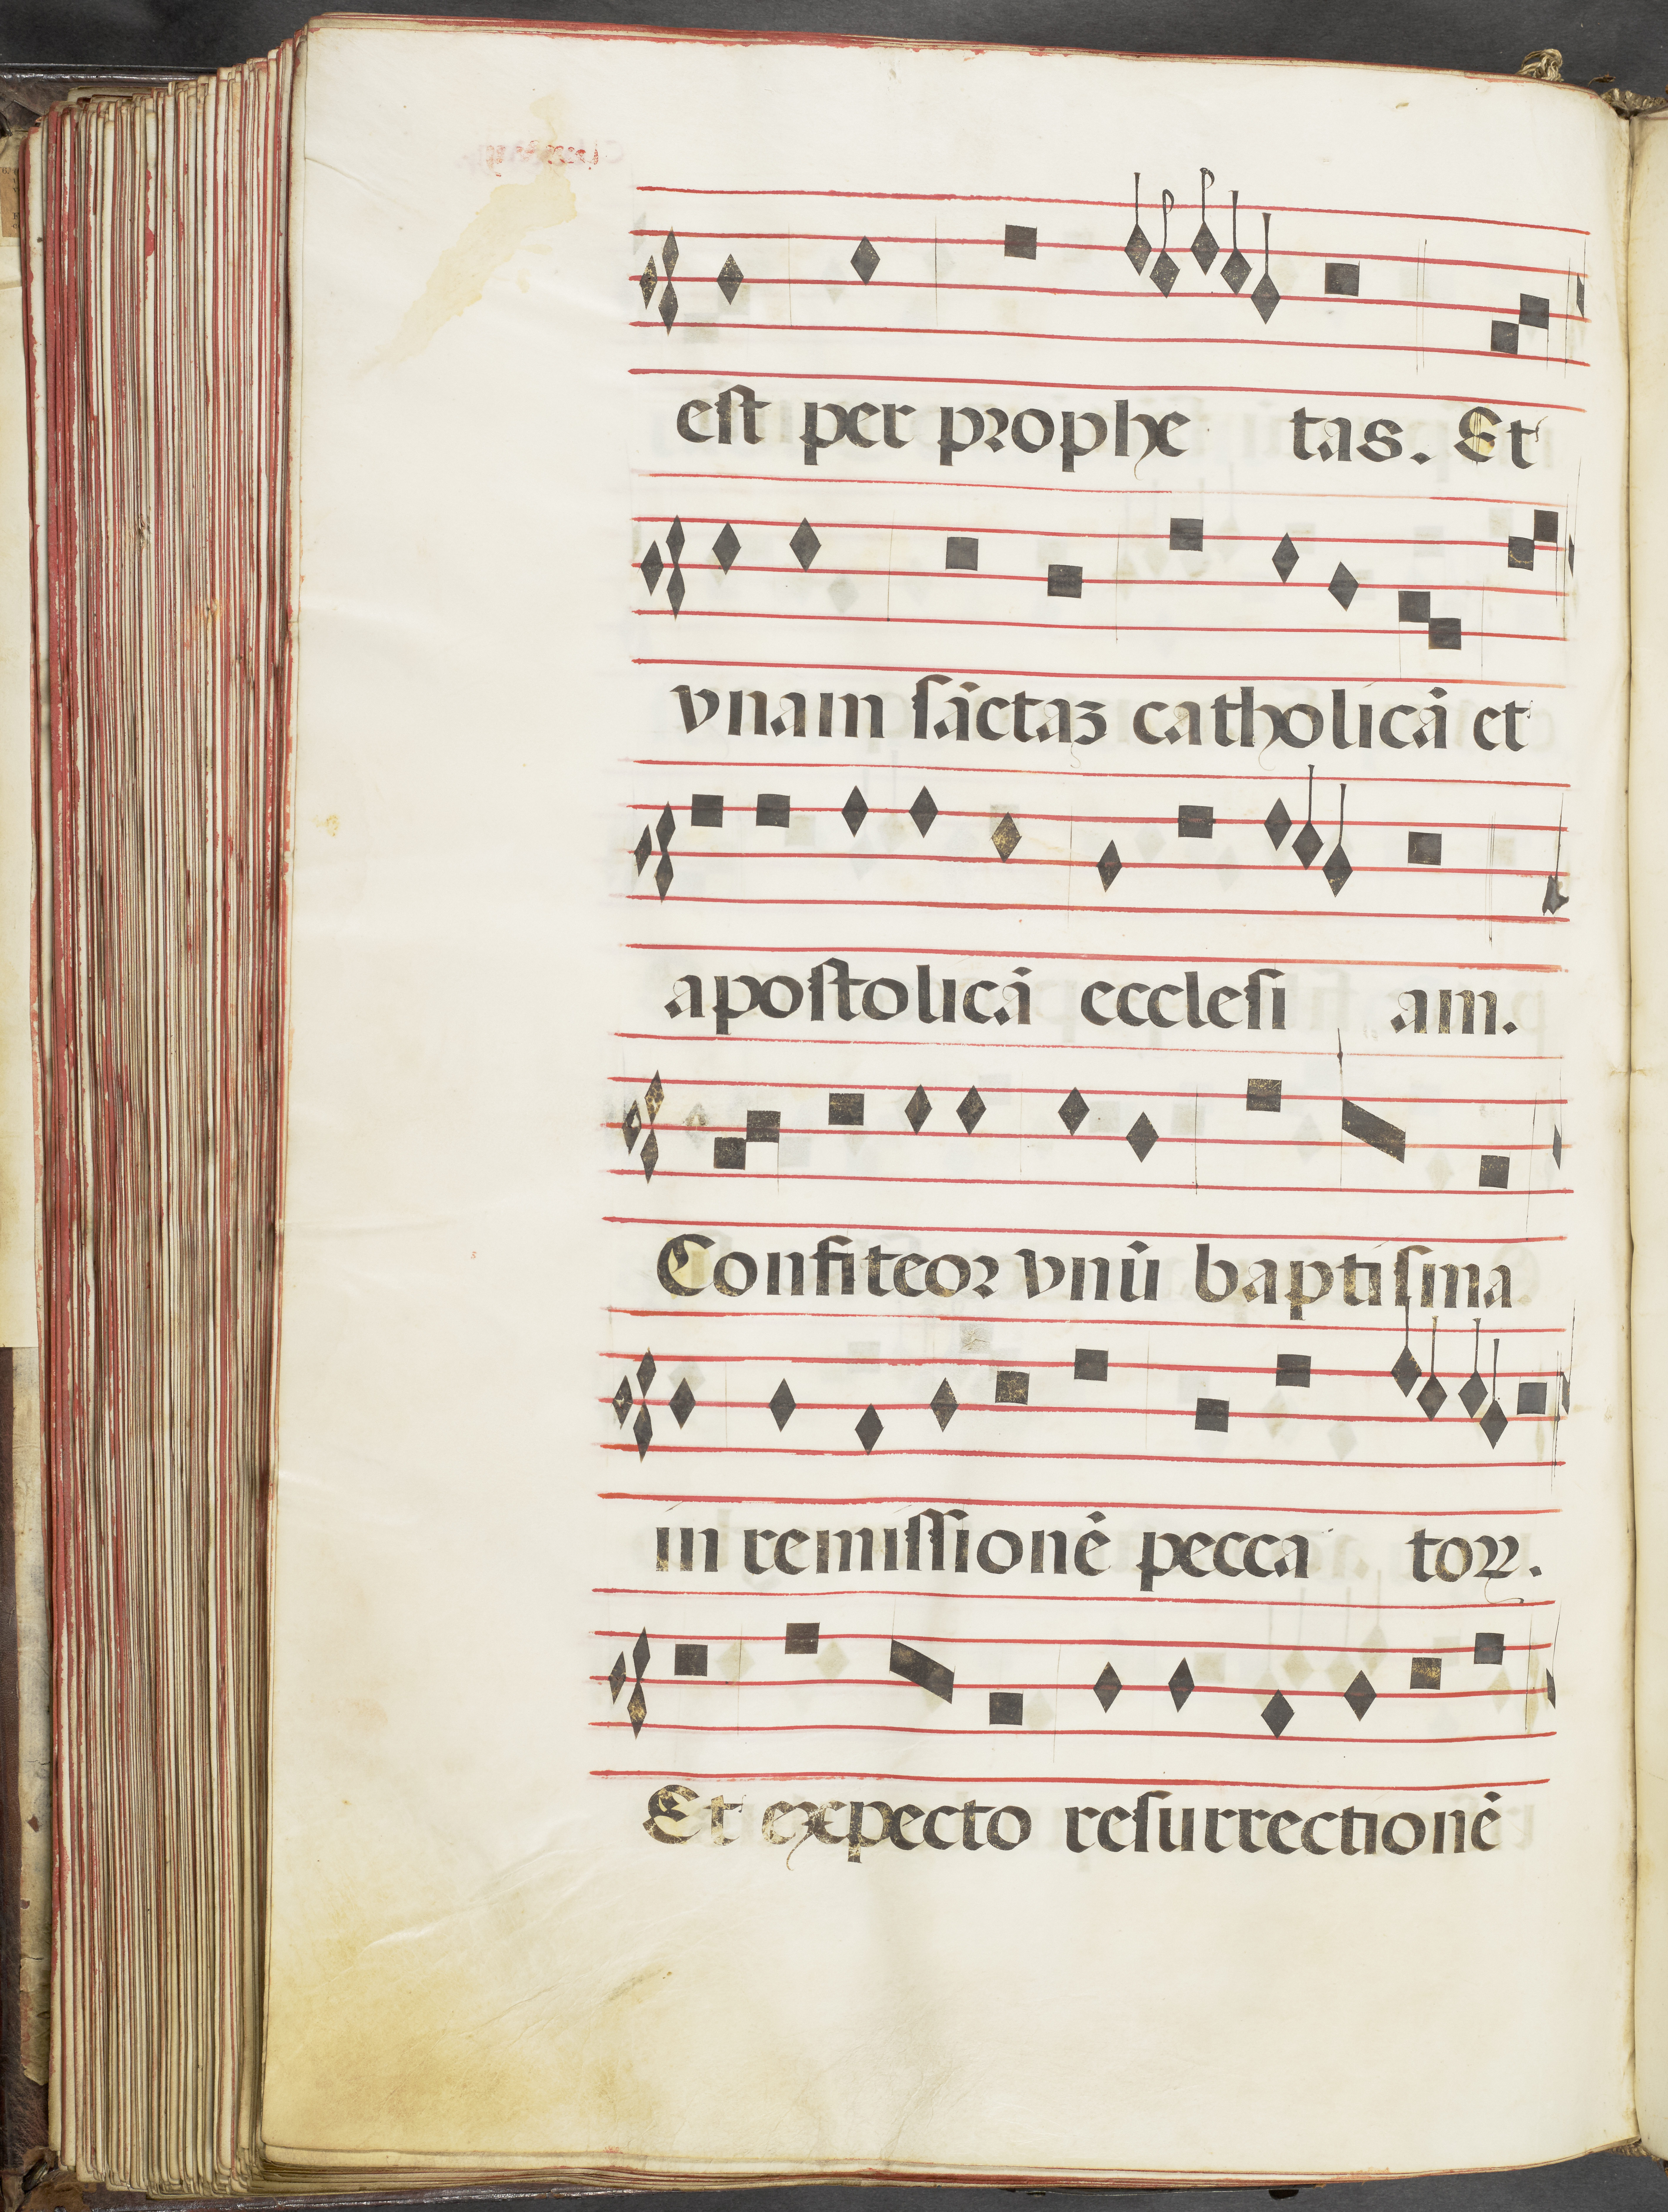 est per prophe tas. Et
vnam sāctaꝫ catholicā et
apostolicā ecclesi am.
Confiteor vnū baptisma
in remissionē pecca toꝝ.
Et expecto resurrectionē